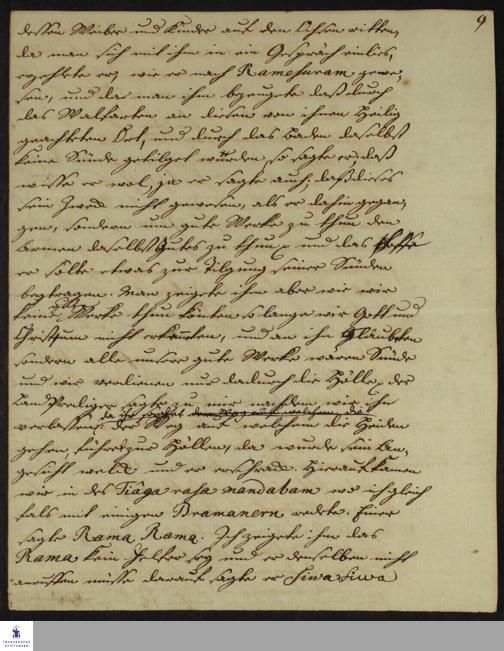 9
dessen Weiber und Kinder auf den Ochsen ritten,
da man sich mit ihm in ein Gespräch einlies,
erzehlte er, wie er nach Ramesuram gewe-
sen, und da man ihm bezeugete daß durch
das Walfarten an diesen von ihnen Heilig
geachteten Ort, und durch das Baden daselbst
keine Sünde getilget würden, so sagte er, daß
wisse er wol, ja er sagte auch, daß dieses
sein Zweck nicht gewesen, als er dahin gegan-
gen, sondern um gute Werke zu thun den
Armen daselbst Gutes zu thun und das hoffe
er solte etwas zur Tilgung seiner Sünden
beytragen. Man zeigete ihm aber wie wir
keine gute Werke thun könten so lange wir Gott und
Christum nicht erkenten, und an ihn Gläubeten
sondern alle unsere gute Werke wären Sünde
und wir verdienen nur dadurch die Hölle, der
Land Prediger sagte zu mir nachdem wir ihn
verlassen, der Weg auf welchem die Heiden
gehen, führet zur Höllen, da wurde sein An-
gesicht und er erschrack. Hierauf kamen
wir in des Tiága rasa mandabam wo ich gleich
fals mit einigen Bramanern redete. Einer
sagte Rama Rama. Ich zeigete ihm das
Rama kein Helfer sey und er denselben nicht
anruffen müsse darauf sagte er Siwa Siwa
FRANCKESCHE
STIFTUNGEN